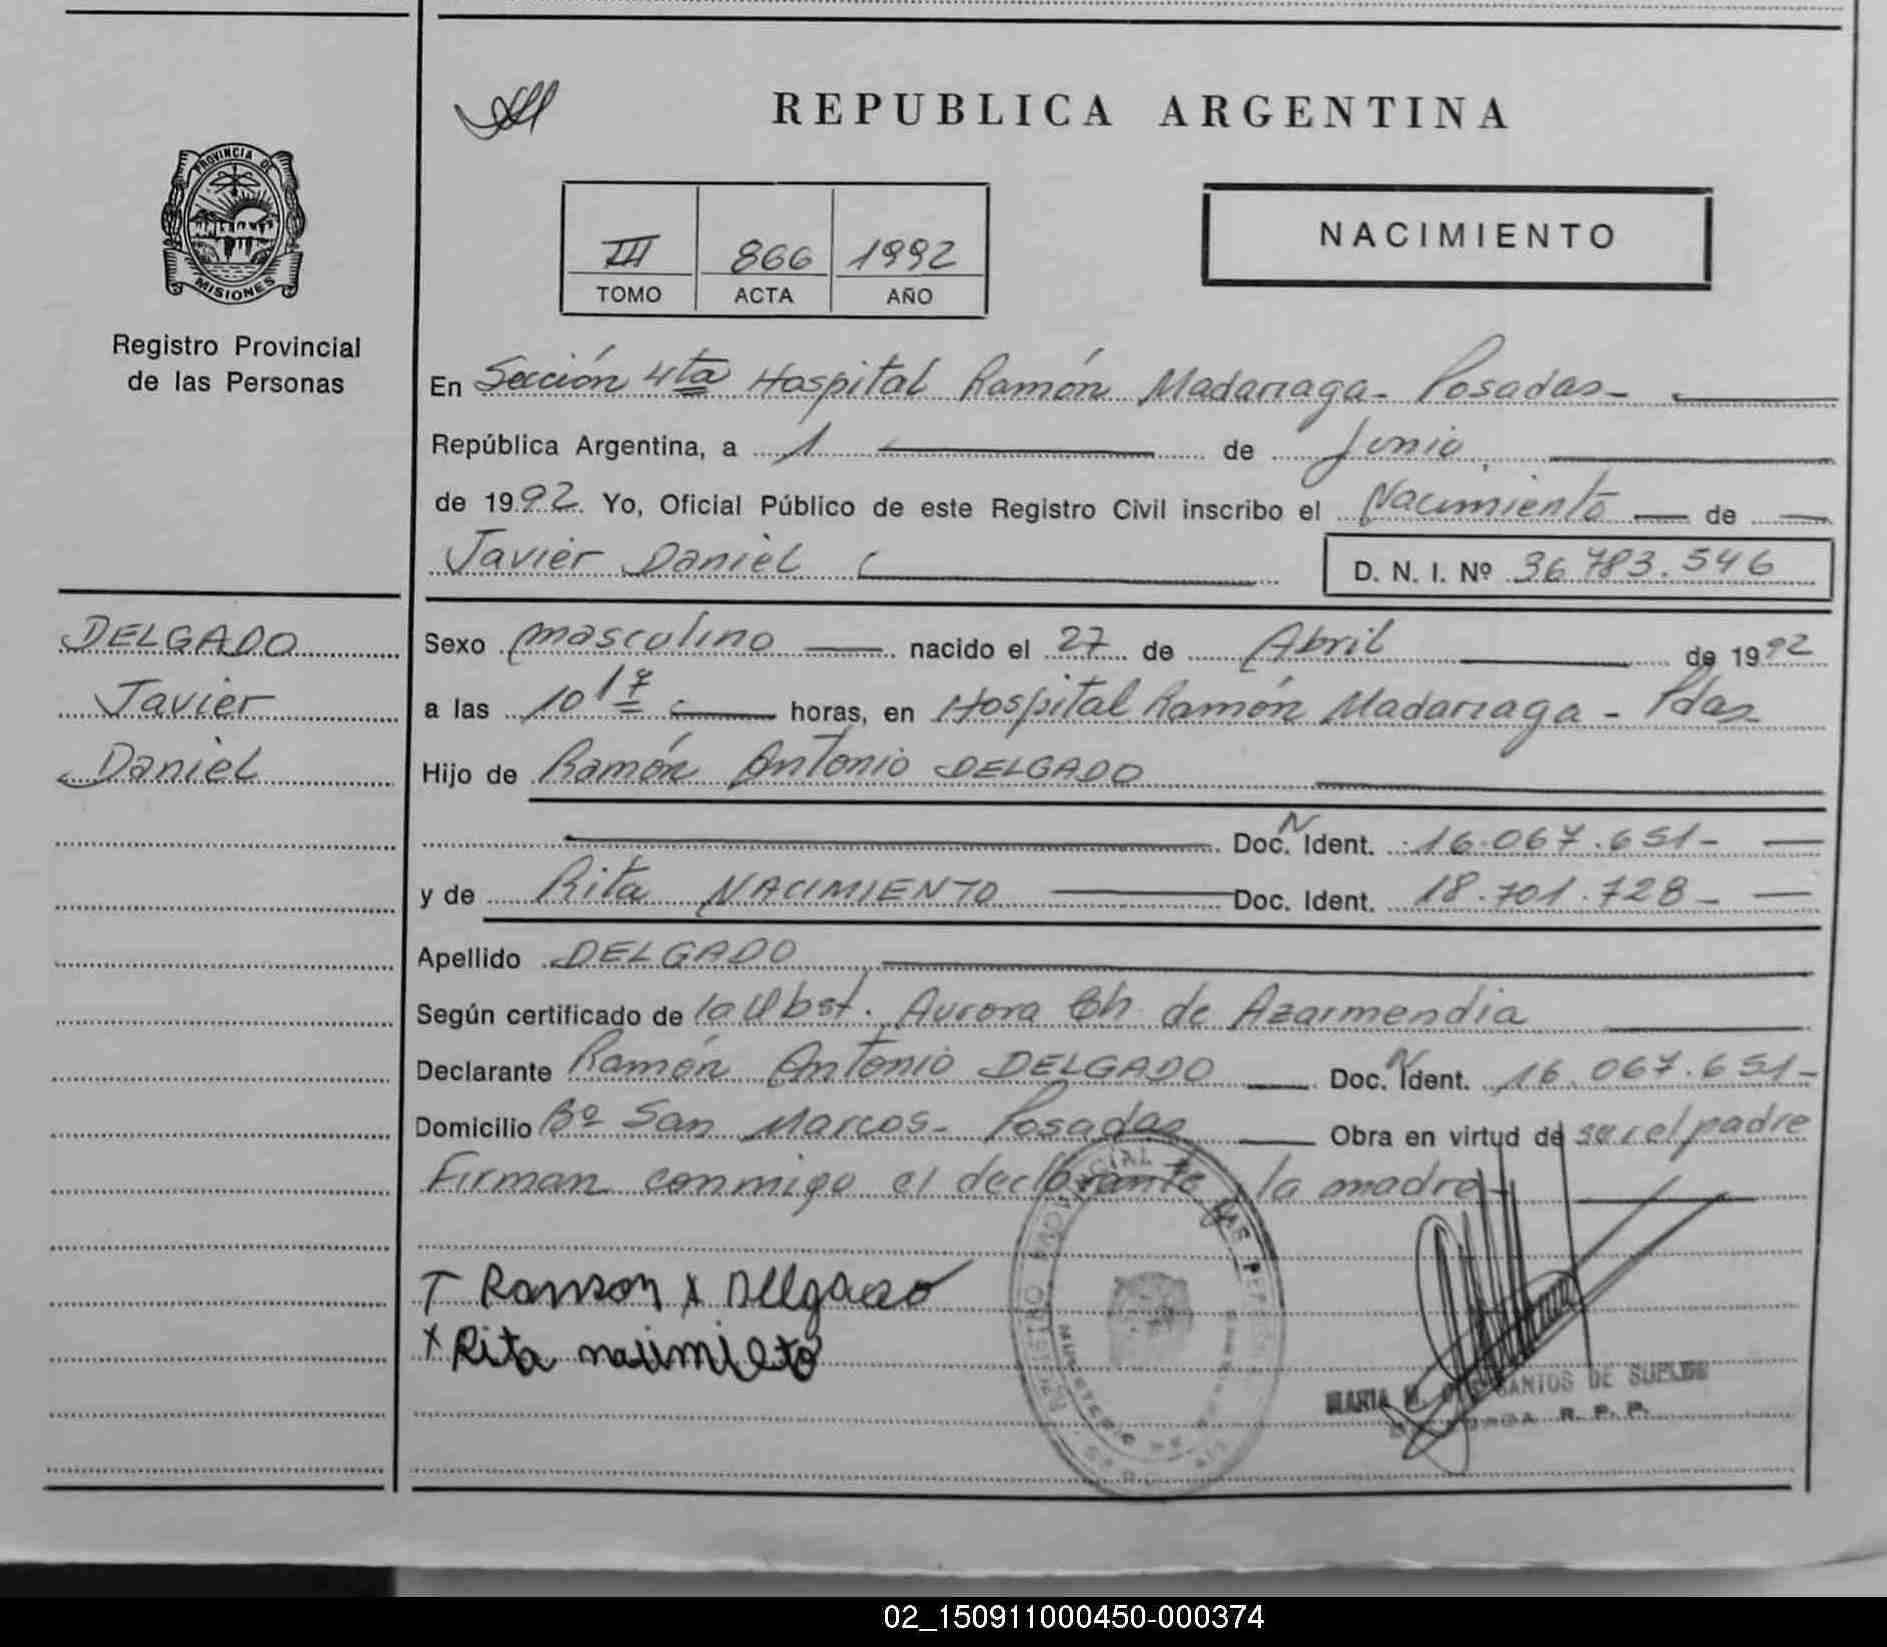 REPUBLICA ARGENTINA
PROVINCIA DE
MISIONES
Registro Provincial
de las Personas
III 866 1992
TOMO ACTA AÑO
NACIMIENTO
En Sección 4ta Hospital Ramón Madariaga - Posadas -
República Argentina, a 1 de Junio
de 1992. Yo, Oficial Público de este Registro Civil inscribo el Nacimiento de
Javier Daniel D. N. I. Nº 36.783.546
DELGADO
Javier
Daniel
Sexo masculino nacido el 27 de Abril de 1992
a las 10 17 horas, en Hospital Ramón Madariaga - Pdas
Hijo de Ramón Antonio DELGADO
Doc. N Ident. 16.067.651 -
y de Rita NACIMIENTO Doc. Ident. 18.701.728 -
Apellido DELGADO
Según certificado de la Obst. Aurora Ch. de Azarmendia
Declarante Ramón Antonio DELGADO Doc. N Ident. 16.067.651 -
Domicilio Bº San Marcos - Posadas Obra en virtud de ser el padre
Firman conmigo el declarante y la madre -
Ramon A Delgado
x Rita nacimieto
MARIA M. SANTOS DE
R. P. P.
02_150911000450-000374